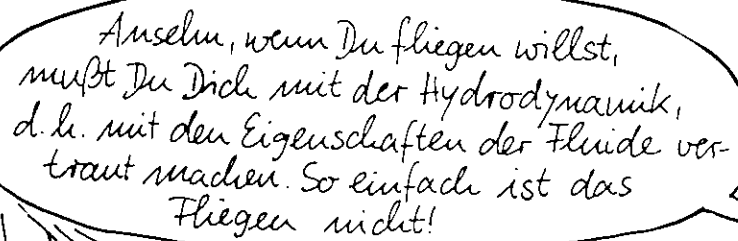 Anselm, wenn Du fliegen willst,
mußt Du Dich mit der Hydrodynamik,
d.h. mit den Eigenschaften der Fluide ver-
traut machen. So einfach ist das
Fliegen nicht!